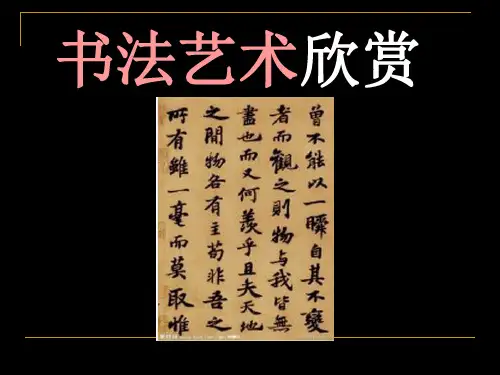 书法艺术欣赏
曾不能以一瞬自其不變
者而觀之則物与我皆無
盡也而又何羨乎且夫天地
之間物各有主苟非吾之
所有雖一毫而莫取惟